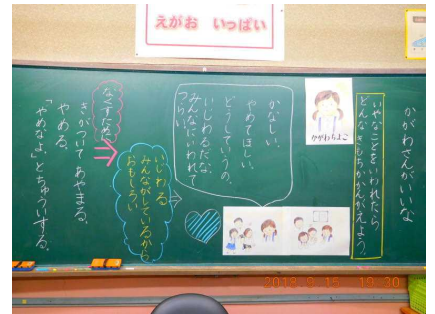 えがお いっぱい
かがわさんがいいな
いやなことをいわれたら
どんなきもちかかんがえよう。
かがわちよこ
かなしい。
やめてほしい。
どうしていうの。
いじわるだな。
みんなにいわれて
つらい。
いじわる
みんながしているから
おもしろい
なくすために
きがついて あやまる。
やめる。
「やめなよ。」とちゅういする。
2018.9.15 19:30